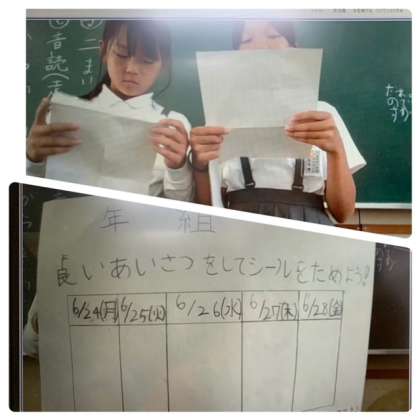 二まい
音読
年 組
良いあいさつをしてシールをためよう!
6/24(月) 6/25(火) 6/26(水) 6/27(木) 6/28(金)